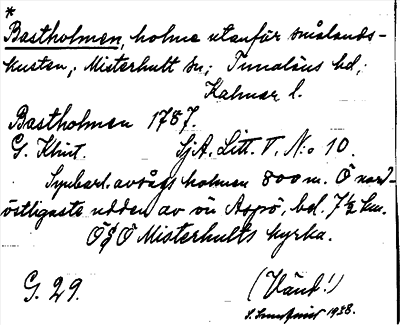 *
Bastholmen, holme utanför smålands-
kusten; Misterhult sn; Tunaläns hd;
Kalmar l.
Bastholmen 1787.
G. Klint. SjA. Litt. V. No 10.
Synbarl. avsågs holmen 800 m. Ö nord-
östligaste udden av ön Aspö, bel. 7½ km.
ÖSÖ Misterhults kyrka.
G. 29. (Vänd!)
1938.